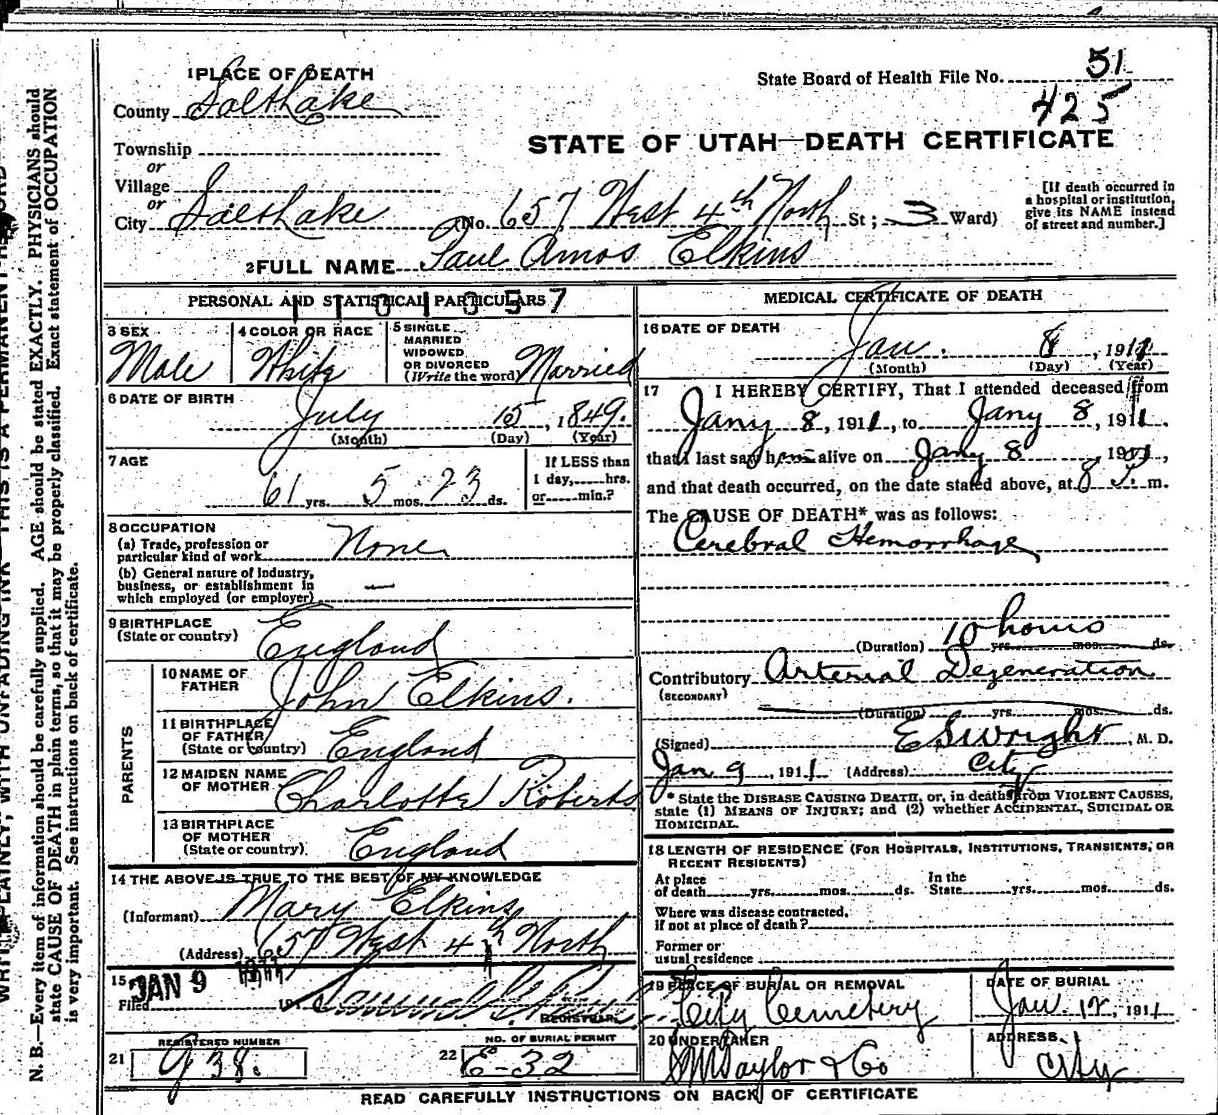 1 PLACE OF DEATH
County Salt Lake
Township
or
Village
or
City Salt Lake (No. 657 West 4th North St; 3 Ward)
State Board of Health File No. 51
425
STATE OF UTAH—DEATH CERTIFICATE
[If death occurred in
a hospital or institution,
give its NAME instead
of street and number.]
2 FULL NAME Paul Amos Elkins
PERSONAL AND STATISTICAL PARTICULARS
1104057
3 SEX Male
4 COLOR OR RACE White
5 SINGLE
MARRIED
WIDOWED
OR DIVORCED
(Write the word) Married
6 DATE OF BIRTH
July 15, 1849.
(Month) (Day) (Year)
7 AGE
61 yrs. 5 mos. 23 ds.
If LESS than
1 day, hrs.
or min.?
8 OCCUPATION
(a) Trade, profession or
particular kind of work None
(b) General nature of industry,
business, or establishment in
which employed (or employer) —
9 BIRTHPLACE
(State or country) England
PARENTS
10 NAME OF
FATHER John Elkins.
11 BIRTHPLACE
OF FATHER
(State or country) England
12 MAIDEN NAME
OF MOTHER Charlotte Roberts
13 BIRTHPLACE
OF MOTHER
(State or country) England
14 THE ABOVE IS TRUE TO THE BEST OF MY KNOWLEDGE
(Informant) Mary Elkins
(Address) 657 West 4th North
15 JAN 9 1911
Filed 19
REGISTRAR
REGISTERED NUMBER
21 938.
NO. OF BURIAL PERMIT
22 E-32
MEDICAL CERTIFICATE OF DEATH
16 DATE OF DEATH
Jan. 8, 1911
(Month) (Day) (Year)
17 I HEREBY CERTIFY, That I attended deceased from
Jany 8, 1911, to Jany 8, 1911.
that I last saw him alive on Jany 8, 1911,
and that death occurred, on the date stated above, at 8 P. m.
The CAUSE OF DEATH* was as follows:
Cerebral Hemorrhage
(Duration) 10 hours yrs. mos. ds.
Contributory Arterial Degeneration
(SECONDARY)
(Duration) yrs. mos. ds.
(Signed) E S Wright, M. D.
Jan 9, 1911 (Address) City
* State the DISEASE CAUSING DEATH, or, in deaths from VIOLENT CAUSES,
state (1) MEANS OF INJURY; and (2) whether ACCIDENTAL, SUICIDAL OR
HOMICIDAL.
18 LENGTH OF RESIDENCE (FOR HOSPITALS, INSTITUTIONS, TRANSIENTS, OR
RECENT RESIDENTS)
At place In the
of death yrs. mos. ds. State yrs. mos. ds.
Where was disease contracted,
if not at place of death?
Former or
usual residence
19 PLACE OF BURIAL OR REMOVAL
City Cemetery
DATE OF BURIAL
Jan. 12, 1911
20 UNDERTAKER
S M Taylor & Co
ADDRESS
City
READ CAREFULLY INSTRUCTIONS ON BACK OF CERTIFICATE
N. B.—Every item of information should be carefully supplied. AGE should be stated EXACTLY. PHYSICIANS should
state CAUSE OF DEATH in plain terms, so that it may be properly classified. Exact statement of OCCUPATION
is very important. See instructions on back of certificate.
WRITE PLAINLY, WITH UNFADING INK—THIS IS A PERMANENT RECORD